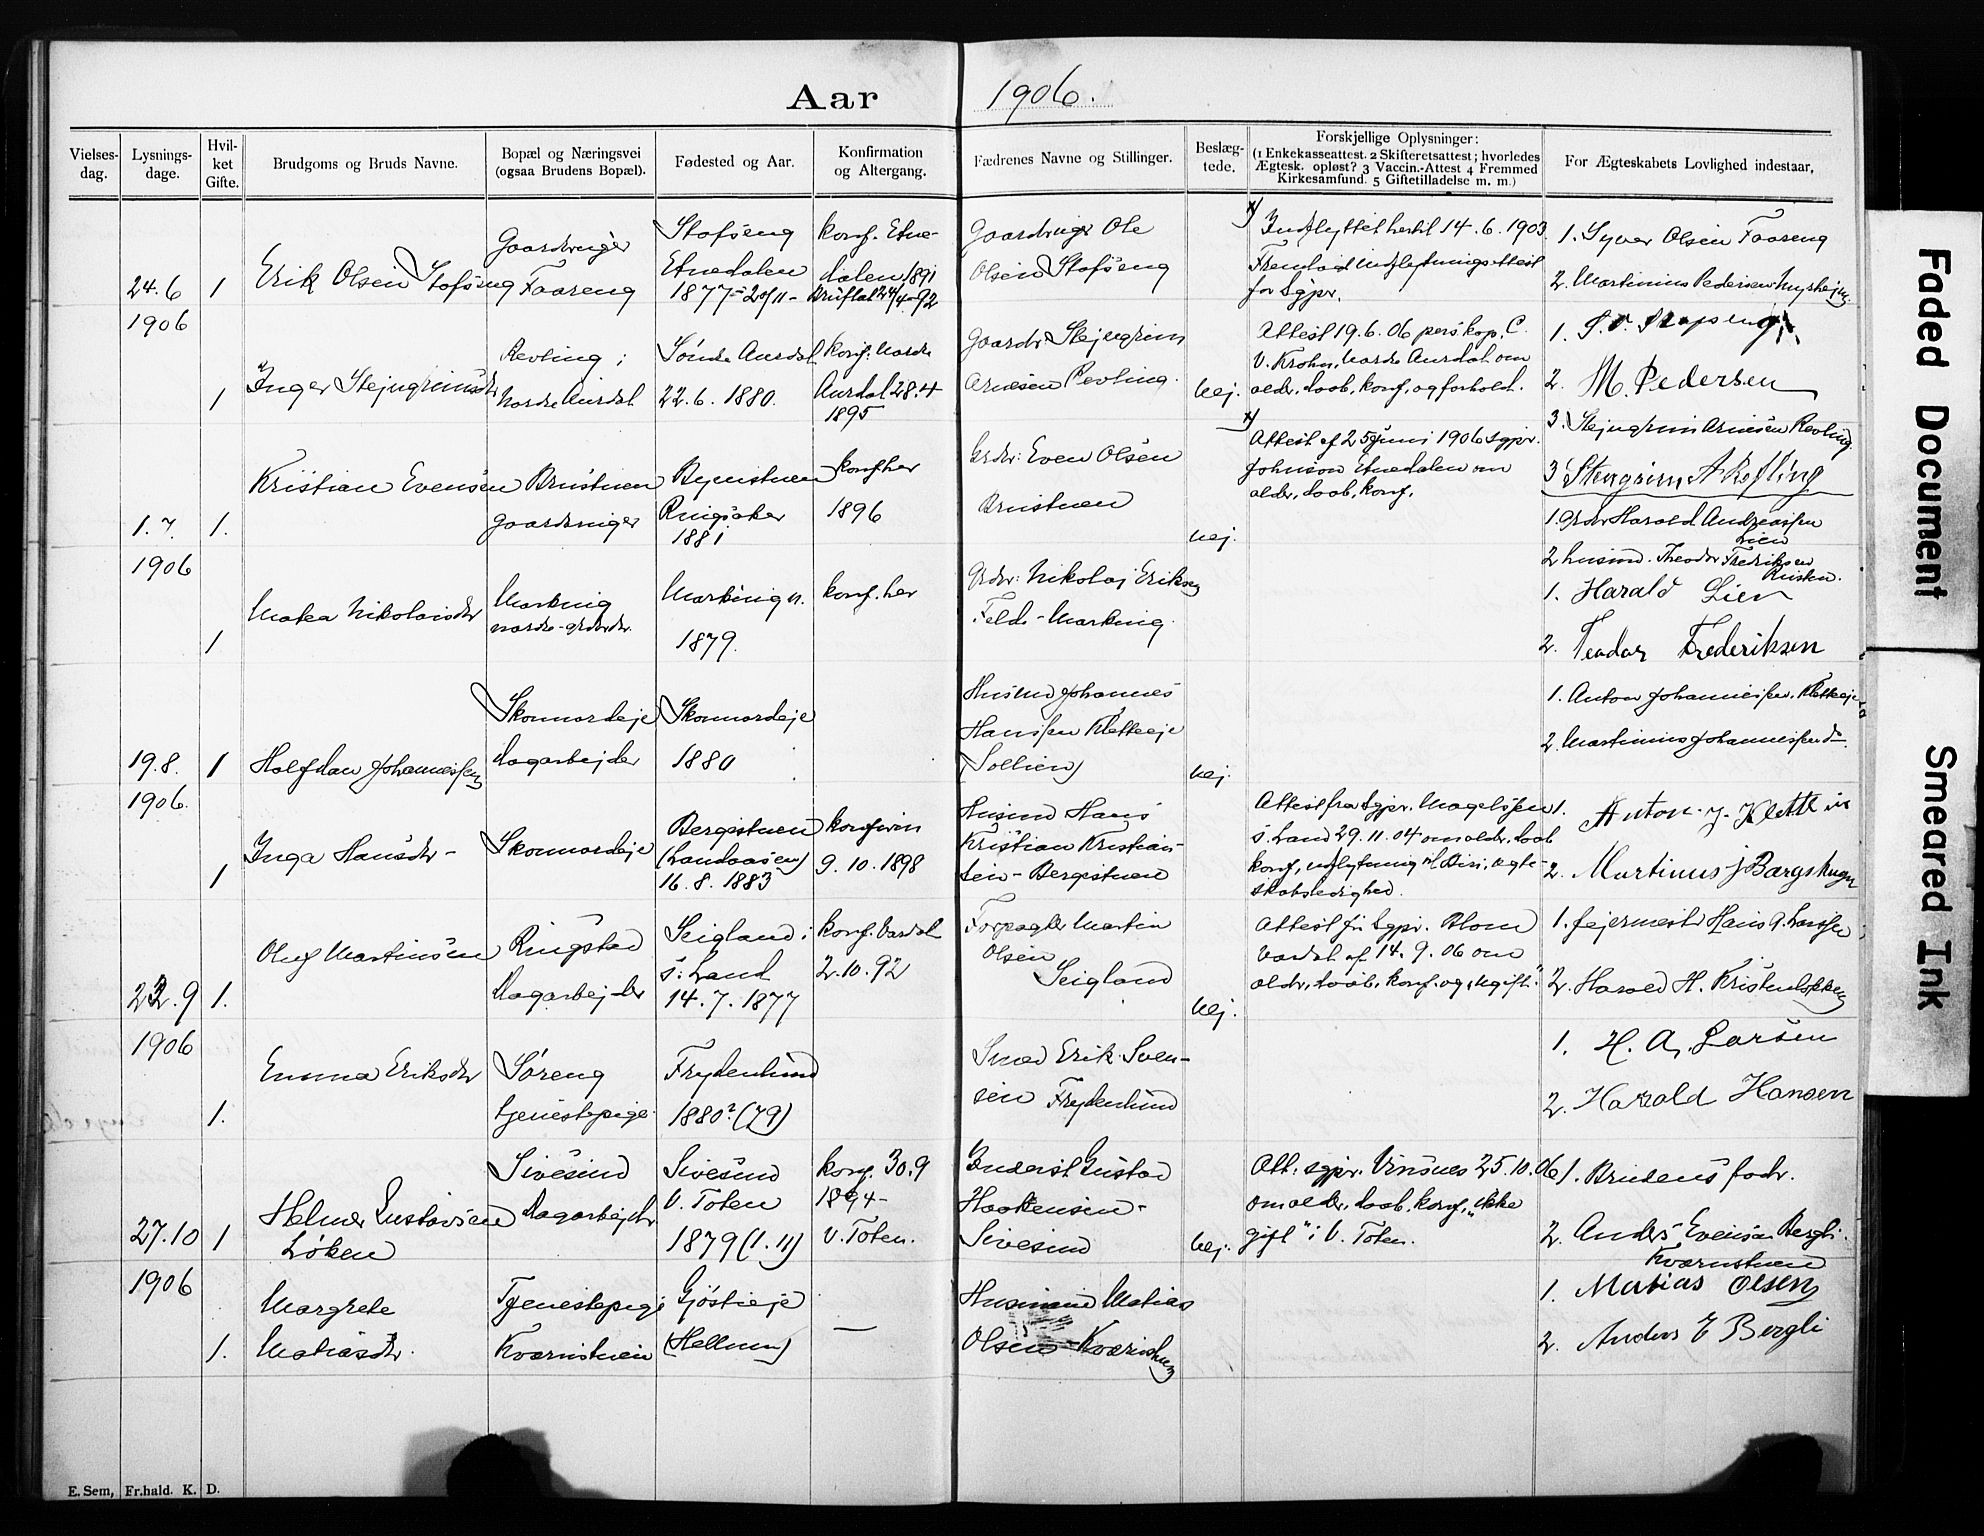 Aar 1906.
Vielses-
dag.
Lysnings-
dage.
Hvil-
ket
Gifte.
Brudgoms og Bruds Navne.
Bopæl og Næringsvei
(ogsaa Brudens Bopæl).
Fødested og Aar.
Konfirmation
og Altergang.
Fædrenes Navne og Stillinger.
Beslæg-
tede.
Forskjellige Oplysninger:
(1 Enkekasseattest. 2 Skifteretsattest; hvorledes
Ægtesk. opløst? 3 Vaccin.-Attest 4 Fremmed
Kirkesamfund. 5 Giftetilladelse m. m.)
For Ægteskabets Lovlighed indestaar,
24.6
1906
1
Erik Olsen Stofseng
Gaardbruger
Faareng
Stofseng
Etnedalen
1877
konf. Etne-
dalen 1891
Gaardbruger Ole
Olsen Stofseng
Indflyttet hertil 14.6.1903.
for Sgpr.
1. Syver Olsen Faareng
2. Martinius Pedersen
1
Inger Stejngrimsdtr
Revling i
Nordre Aurdal
Søndre Aurdal
22.6.1880.
konf. Nordre
Aurdal 28.4
1895
Gaardbr Stejngrim
Arnesen Revling.
Nej.
Attest 19.6.06 pers.kap. C.
V. Krohn, Nordre Aurdal om
alder, daab, konf, og forhold.
1.
2. M. Pedersen
3. Stejngrim Arnesen Revling
3 Stengrim A Refling
1.7.
1906
1.
Kristian Evensen
Brustuen
gaardbruger
Ringsaker
1881
konf her
1896
Grdbr: Even Olsen
Brustuen
nej.
Attest af 25 Juni 1906 sgpr.
Johnson Etnedalen om
alder, daab, konf.
1. Grdbr Harald Andreassen
Lien
2 husmd. Theodor Fredriksen
1
Matea Nikolaisdtr
Markeng
nordre - grdbrdr.
Markeng n.
1879.
konf. her
Grdbr: Nikolaj Eriksen
Feld-Markeng.
1. Harald Lien
2. Teodor Frederiksen
19.8.
1906.
1
Halfdan Johannessen
Skonnordeje
dagarbejder
Skonnordeje
1880
Husmd Johannes
Hanssen Kletteeje
(Sollien)
nej.
1. Anton Johannessen, Kletteeje
2. Martinius Johannessen do
1
Inga Hansdtr -
Skonnordeje
Bergstuen
(Landaasen)
16.8.1883
9.10.1898
Husmd Hans
Kristian Kristian-
sen - Bergstuen
Attest fra Sgpr. Magelssen
S. Land 29.11.04 om alder, daab
konf, udflytning til Biri, ægte-
skabsledighed.
1. Anton J. Klett
2. Martinus J Bargshagn
23.9
1906
1.
Oluf Martinsen
Ringstad
Dagarbejder
Seigland i
S. Land
14.7.1877
konf. Vardal
2.10.92
Forpagter Martin
Olsen
Seigland
Nej.
Attest fr. Sgpr. Blom
Vardal af 14.9.06 om
alder, daab, konf. og „ugift."
1. fejermester Hans A. Larssen
2. Harald H.
1.
Emma Eriksdtr
Søreng
tjenestepige
Frydenlund
1880? (79)
Smed Erik Sven-
sen Frydenlund
1. H. A. Larsen
2. Harald Hansen
27.10
1906
1
Helmer Gustavsen
Løken
Sivesind
Dagarbejder
Sivesind
V. Toten
1879 (1.11)
konf. 30.9
1894-
V. Toten.
Inderst Gustav
Haakensen-
Sivesind
Nej.
Att. sgpr. Vinsnes 25.10.06
om alder, daab, konf., „ikke
gift" i V. Toten.
1. Brudens fader.
2. Anders Evensen Bergli.
Kværnstuen
1.
Margrete
Matiasdtr.
Tjenestepige
Kværnstuen
Gjøstieje
(Hellum)
—
Husmand Matias
Olsen - Kværnstuen
1. Matias Olsen
2. Anders E Bergli
E. Sem, Fr.hald. K. D.
Faded Document
Smeared Ink